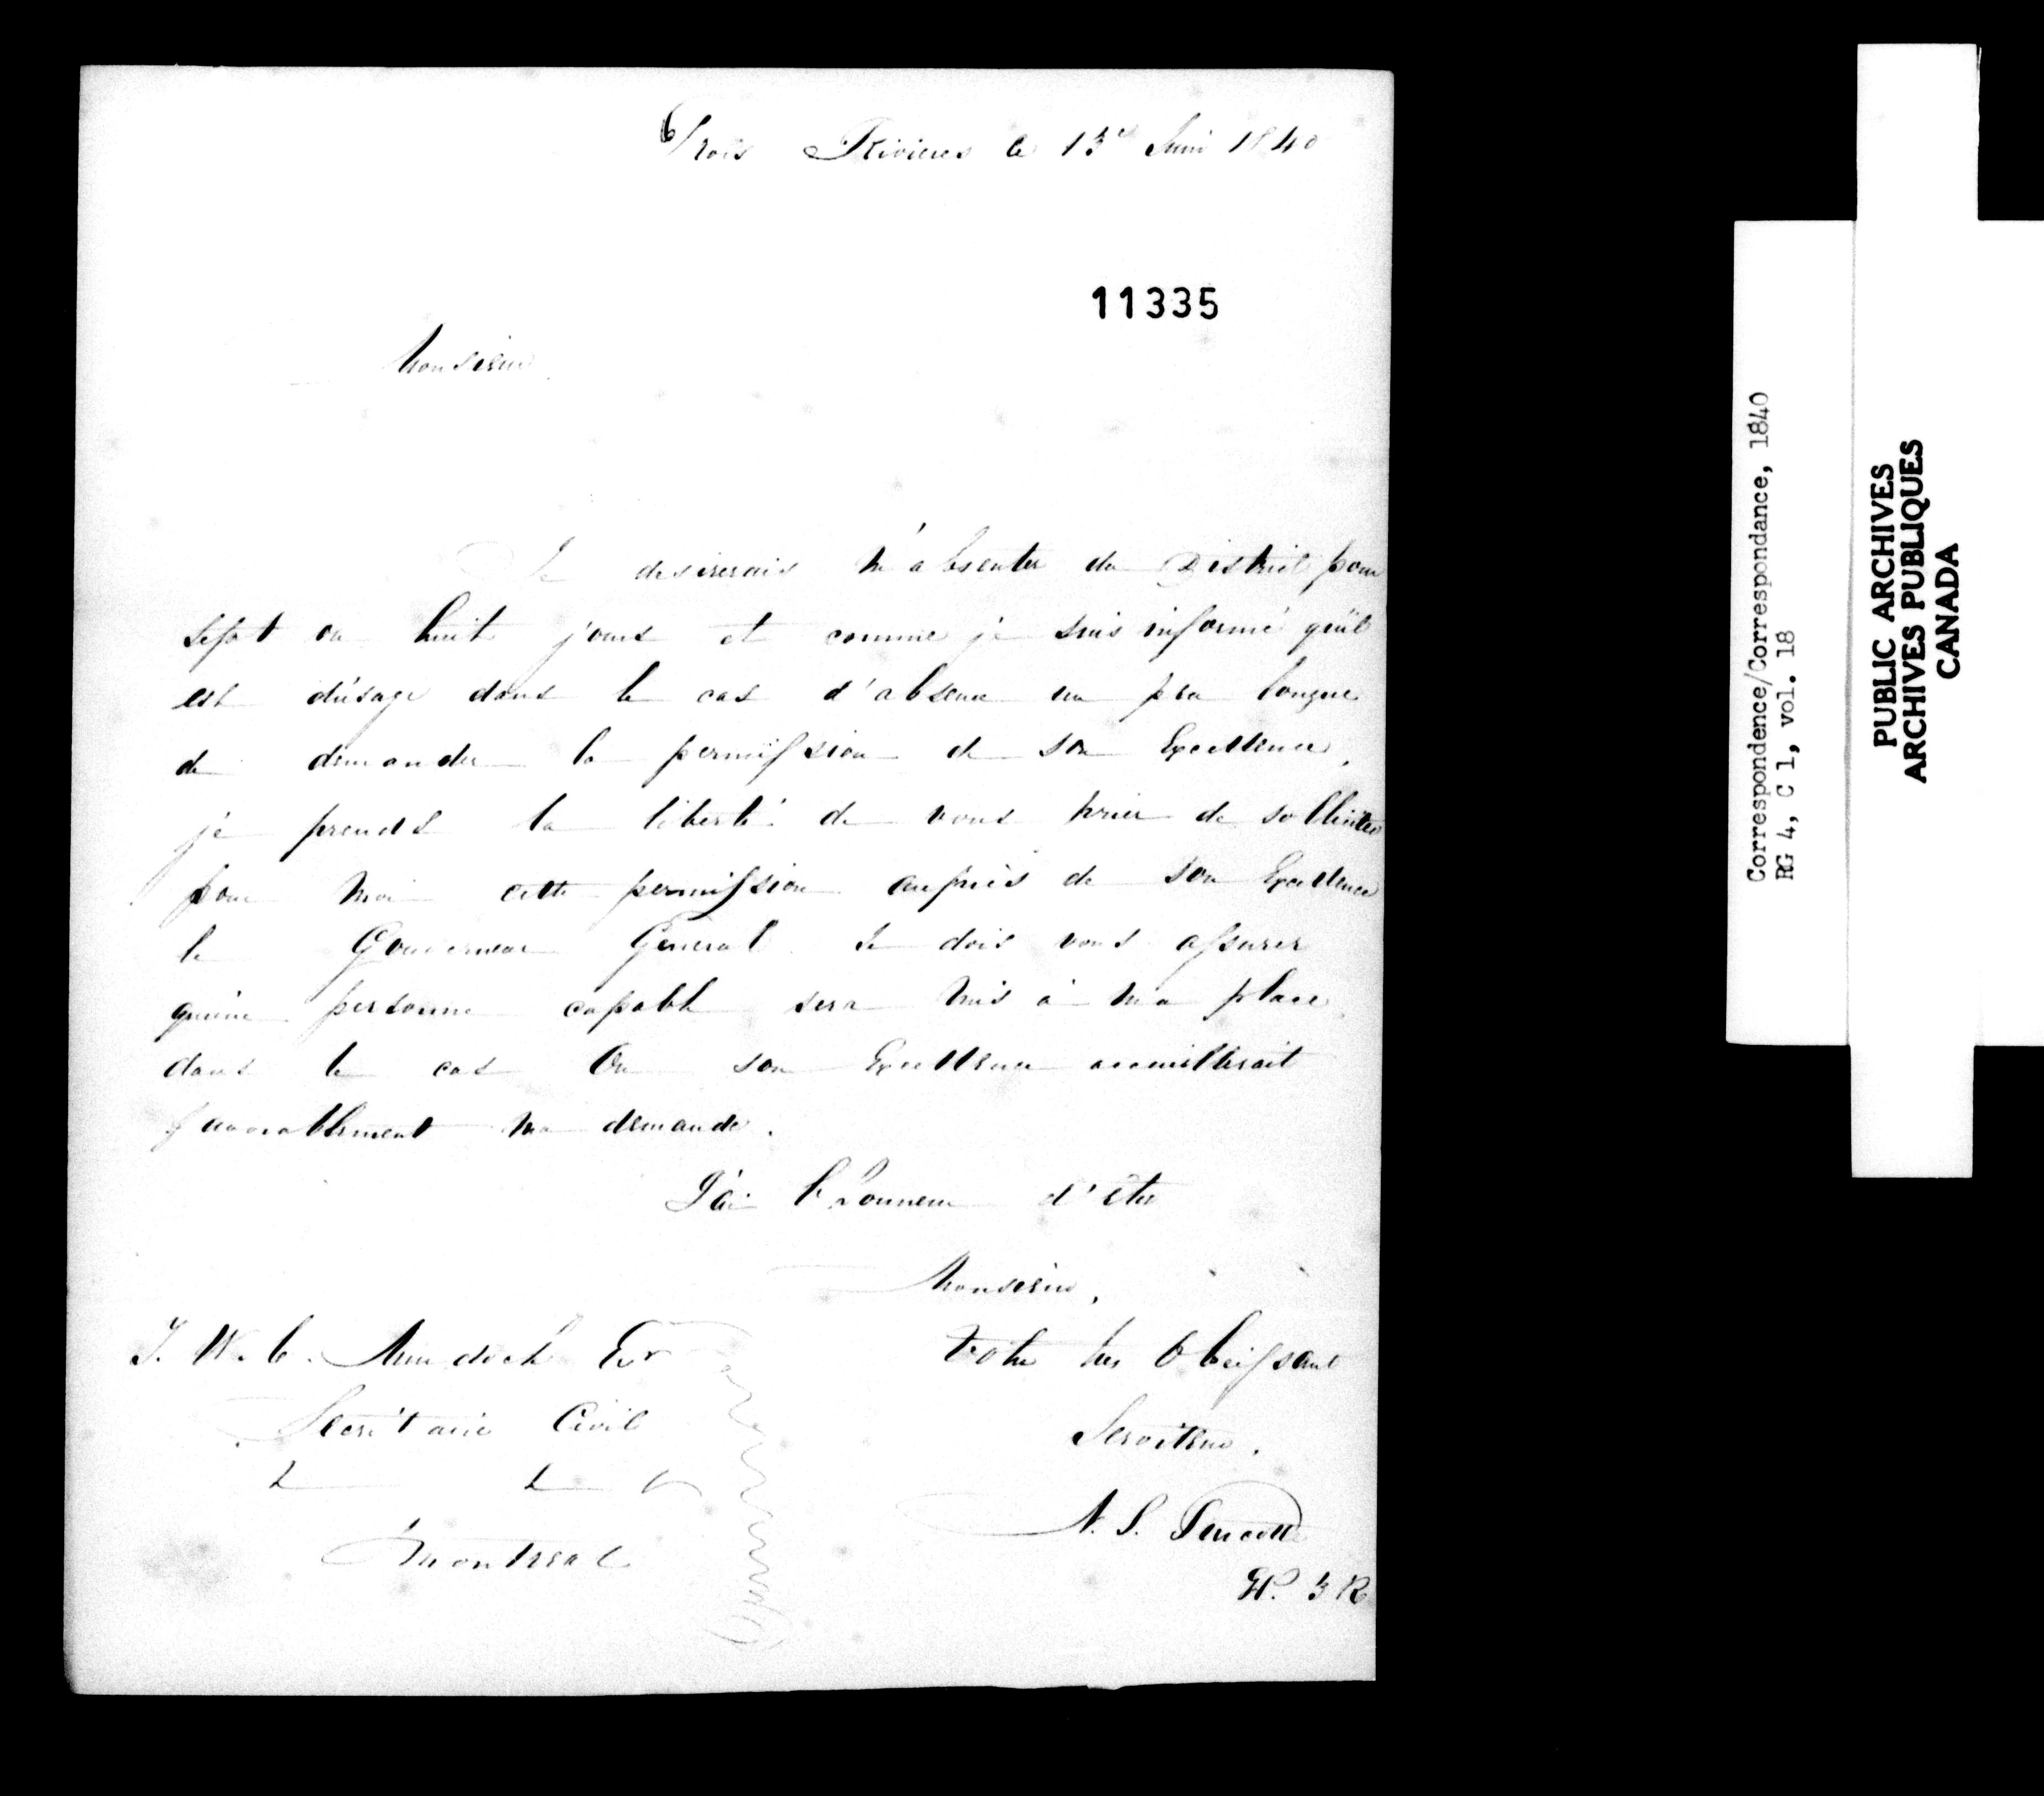 Trois Rivieres le 13 Juin 1840
11335
Monsieur
Je desirerais m'absenter du District pour
sept ou huit jours et comme je suis informé qu'il
est d'usage dans le cas d'absence un peu longue
de demander la permission de son Excellence,
je prends la liberté de vous prier de solliciter
pour moi cette permission auprès de son Excellence
le Gouverneur General Je dois vous assurer
qu'une personne capable sera mis à ma place
dans le cas Ou son Excellence accueillerait
favorablement ma demande.
J'ai l'honneur d'être
Monsieur,
Votre tres Obeissant
Serviteur.
T. W. C. Murdoch Er
Secrétaire Civil
Montreal
PUBLIC ARCHIVES
ARCHIVES PUBLIQUES
CANADA
Correspondence/Correspondance, 1840
RG 4, C 1, vol. 18